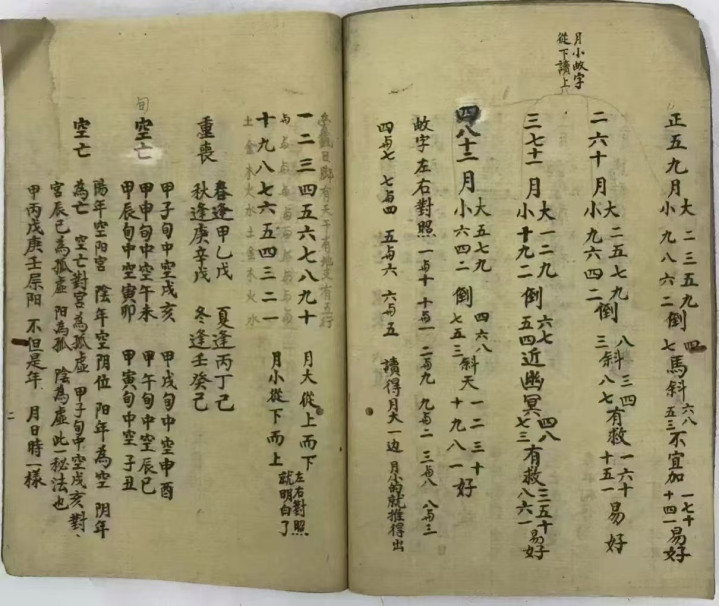 月小畝字
從下讀上
正五九月大 二三五九 倒 四 馬斜 六八 不宜加 一七十 易好
小 九八六二 七 五三 十四一
二六十月大 二五七九 倒 八斜三四 有救 一六十 易好
小 九六四二 三斜八七 十五一
三七十一月大 一二九 倒 六七 近幽冥 四八 有救 三五十 易好
小 十九二 五四 七三 八六一
四八十二月大 五七九 倒 四六八 斜天 一二三十 好
小 六四二 七五三 十九八一
畝字左右對照 一与十 十与一 二与九 九与二 三与八 八与三
四与七 七与四 五与六 六与五 讀得月大一边 月小的就推得出
一二三四五六七八九十 月大從上而下
与与与与与与与与与与
十九八七六五四三二一 月小從下而上
左右對照
就明白了
土金木火水土金木火水
重喪 春逢甲乙戊 夏逢丙丁己
秋逢庚辛戊 冬逢壬癸己
旬
空亡 甲子旬中空戌亥 甲戌旬中空申酉
甲申旬中空午未 甲午旬中空辰巳
甲辰旬中空寅卯 甲寅旬中空子丑
空亡 陽年空阳宮 陰年空阴位 阳年為空 阴年
為亡 空亡對宮為孤虛 甲子旬中空戌亥對
宮辰巳為孤虛 阳為孤 陰為虛此一秘法也
甲丙戊庚壬屬阳 不但是年 月日時一樣
二